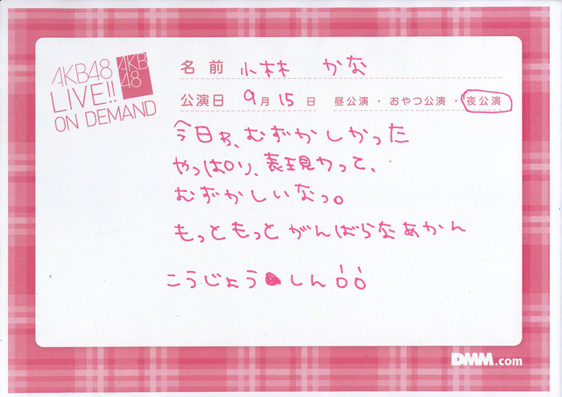 AKB48
LIVE!!
ON DEMAND
AKB
48
名前 小林 かな
公演日 9月 15日 昼公演・おやつ公演・夜公演
今日も、むずかしかった
やっぱり、表現力って、
むずかしいなっ。
もっともっとがんばらなあかん
こうじょうしん
DMM.com